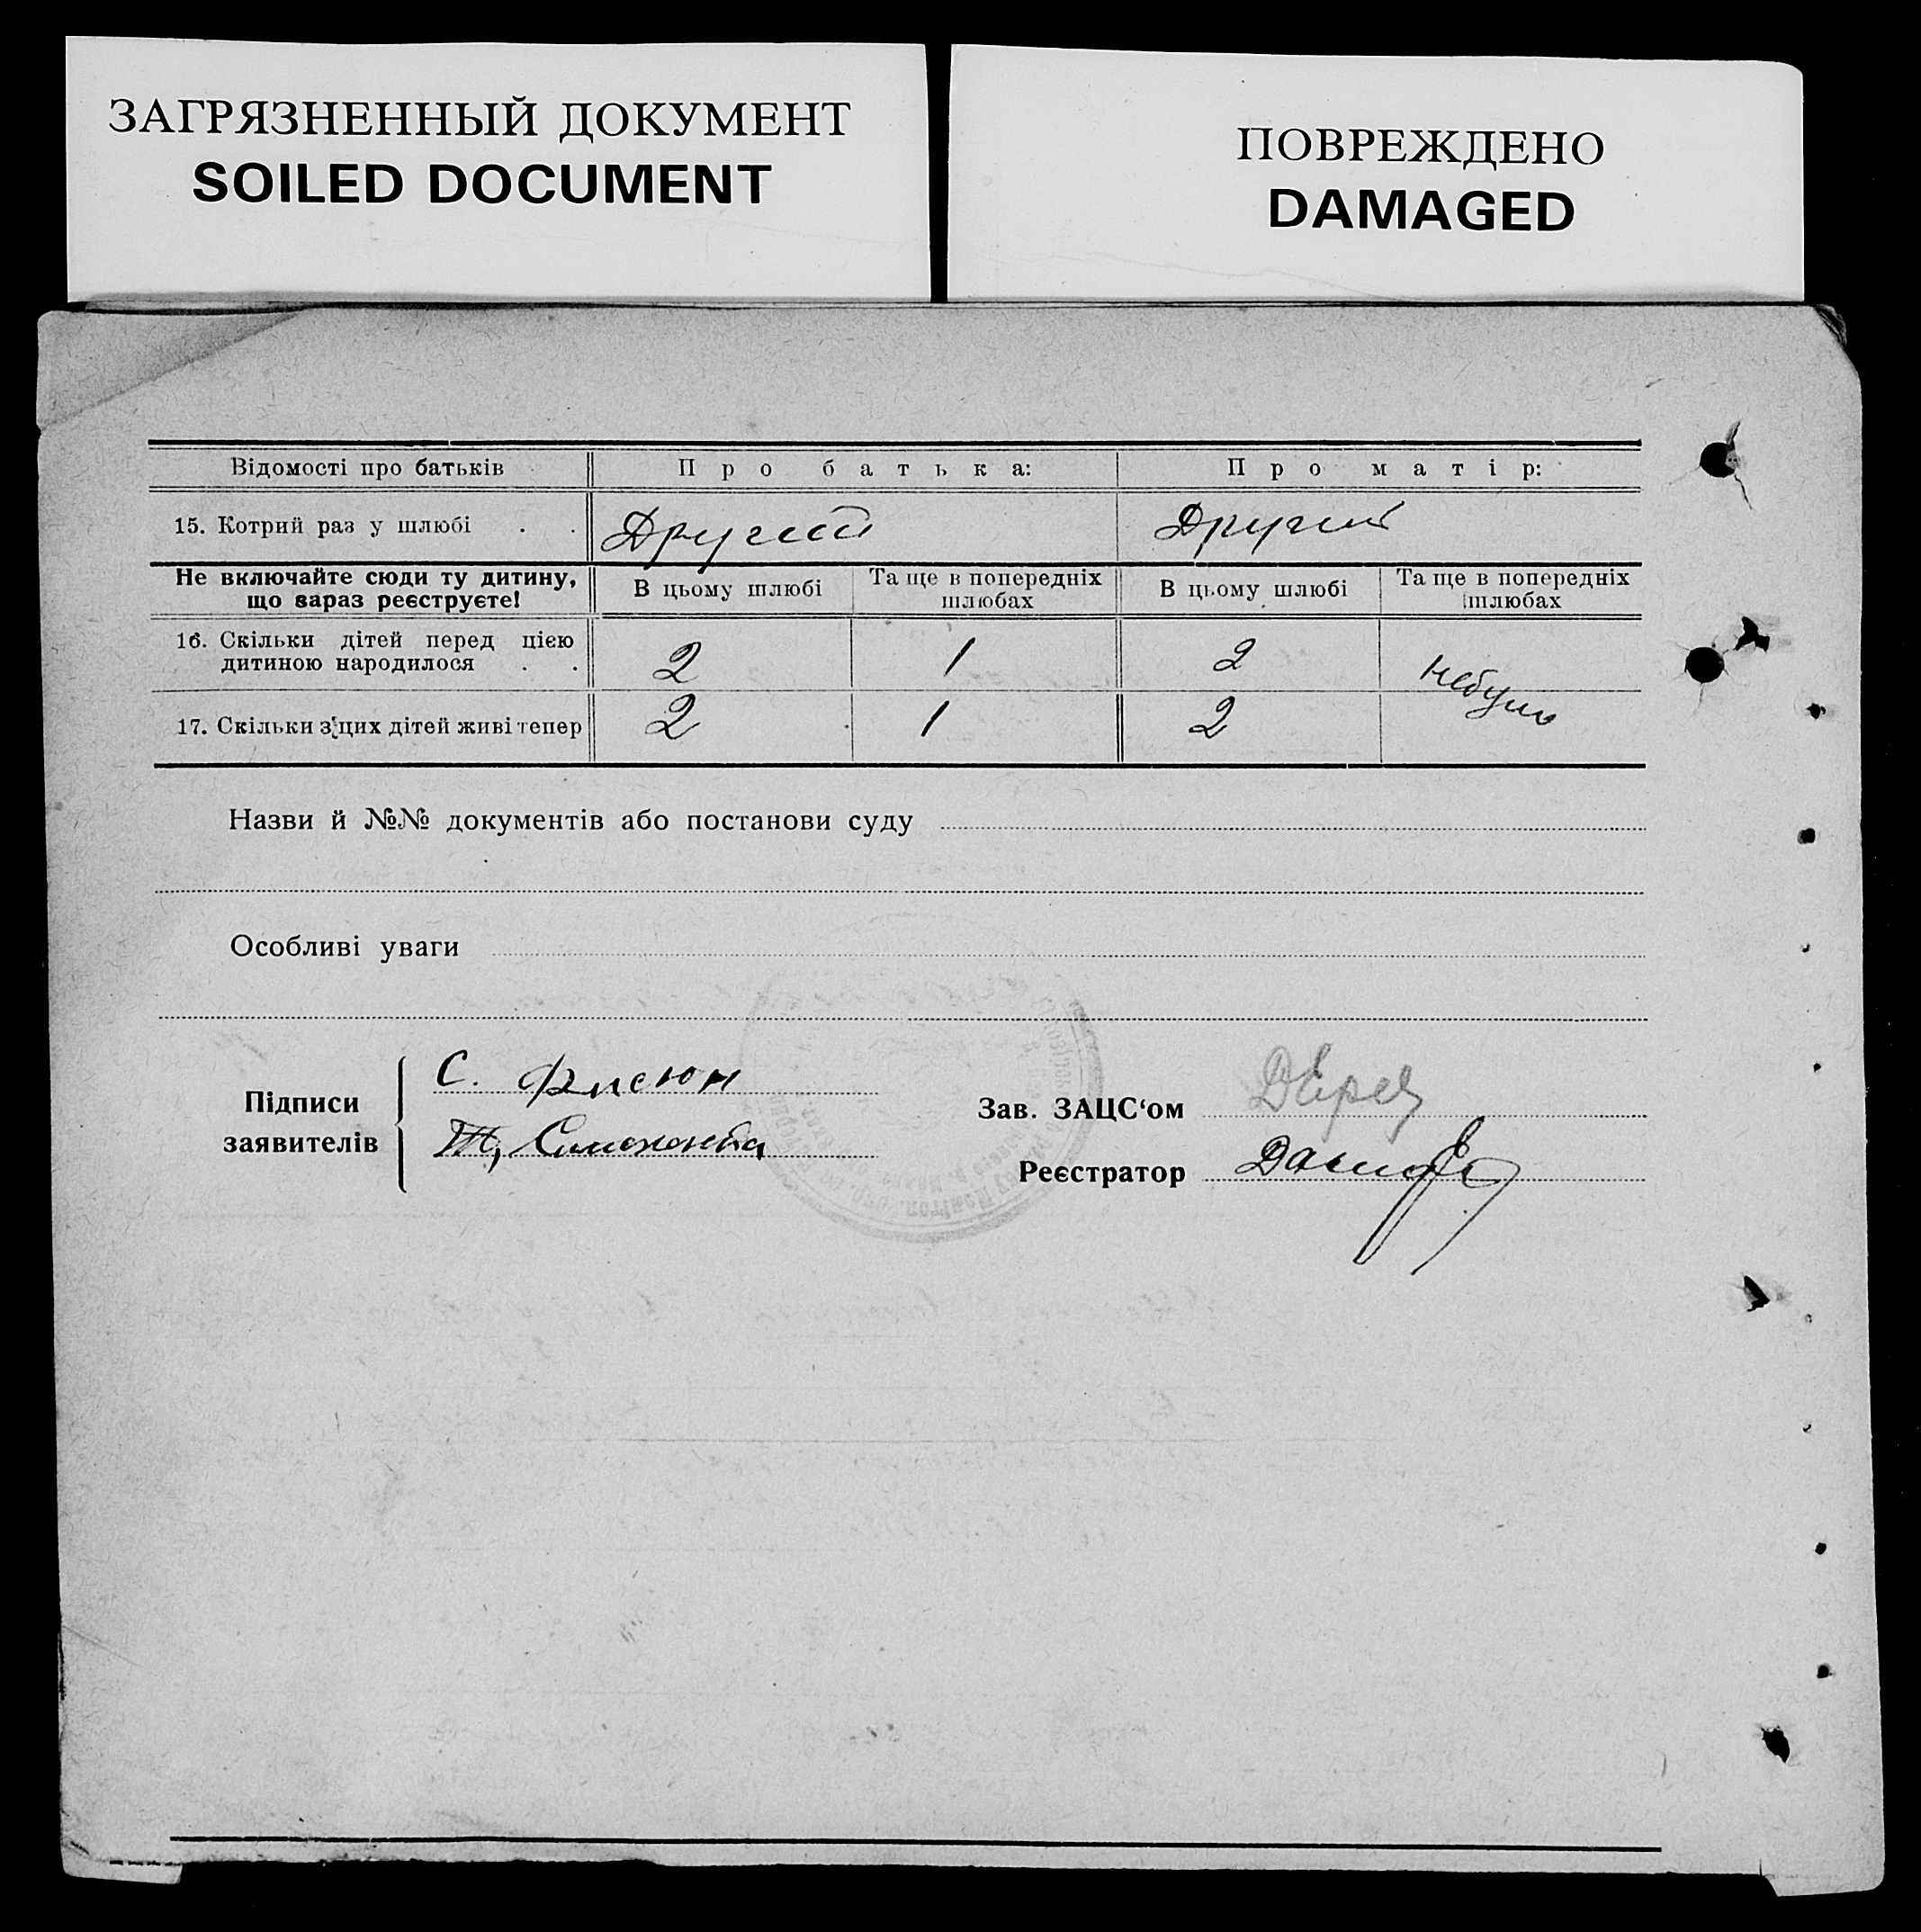 ЗАГРЯЗНЕННЫЙ ДОКУМЕНТ
SOILED DOCUMENT
ПОВРЕЖДЕНО
DAMAGED
Відомості про батьків Про батька: Про матір:
15. Котрий раз у шлюбі . . Другий Другий
Не включайте сюди ту дитину, що зараз реєструєте! В цьому шлюбі Та ще в попередніх шлюбах В цьому шлюбі Та ще в попередніх шлюбах
16. Скільки дітей перед цією
дитиною народилося . . 2 1 2 небуло
17. Скільки з цих дітей живі тепер 2 1 2
Назви й №№ документів або постанови суду
Особливі уваги
Підписи
заявителів
С. Фисюн
Зав. ЗАЦС‘ом
Реєстратор